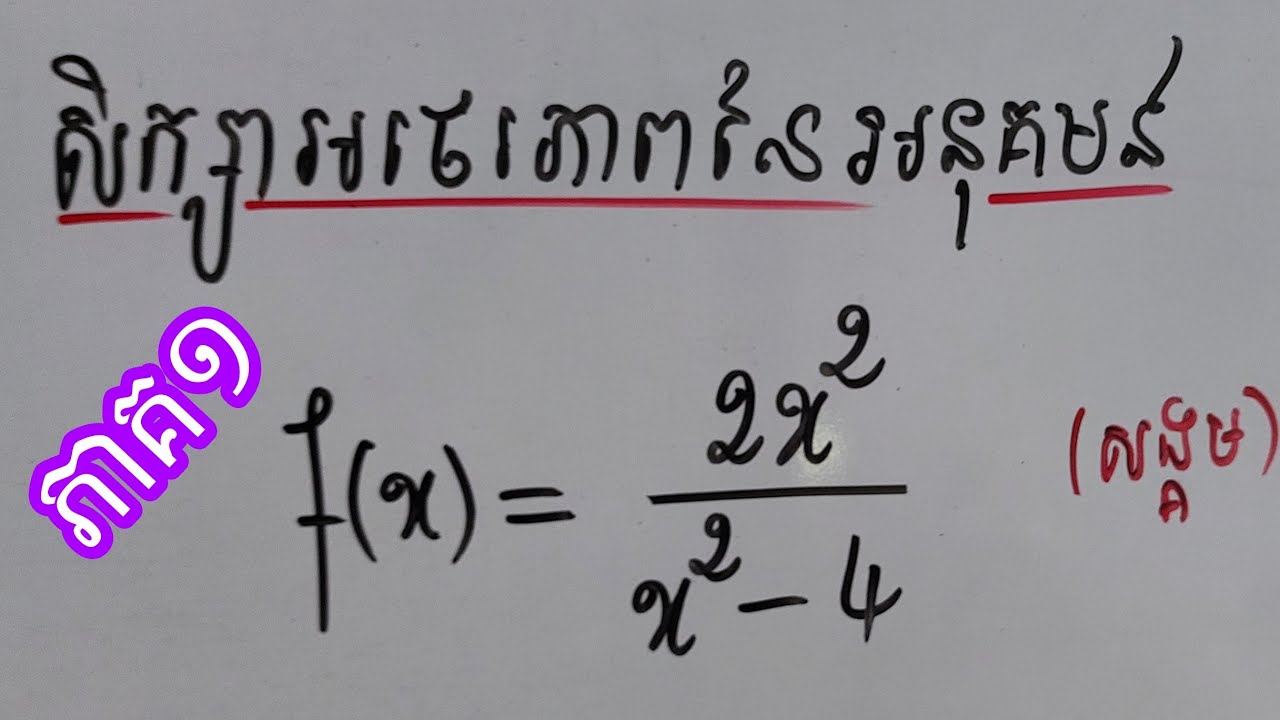 សិក្សាអថេរភាពនៃអនុគមន៍
ភាគ១
f(x) = 2x² / x² - 4
(សង្គម)